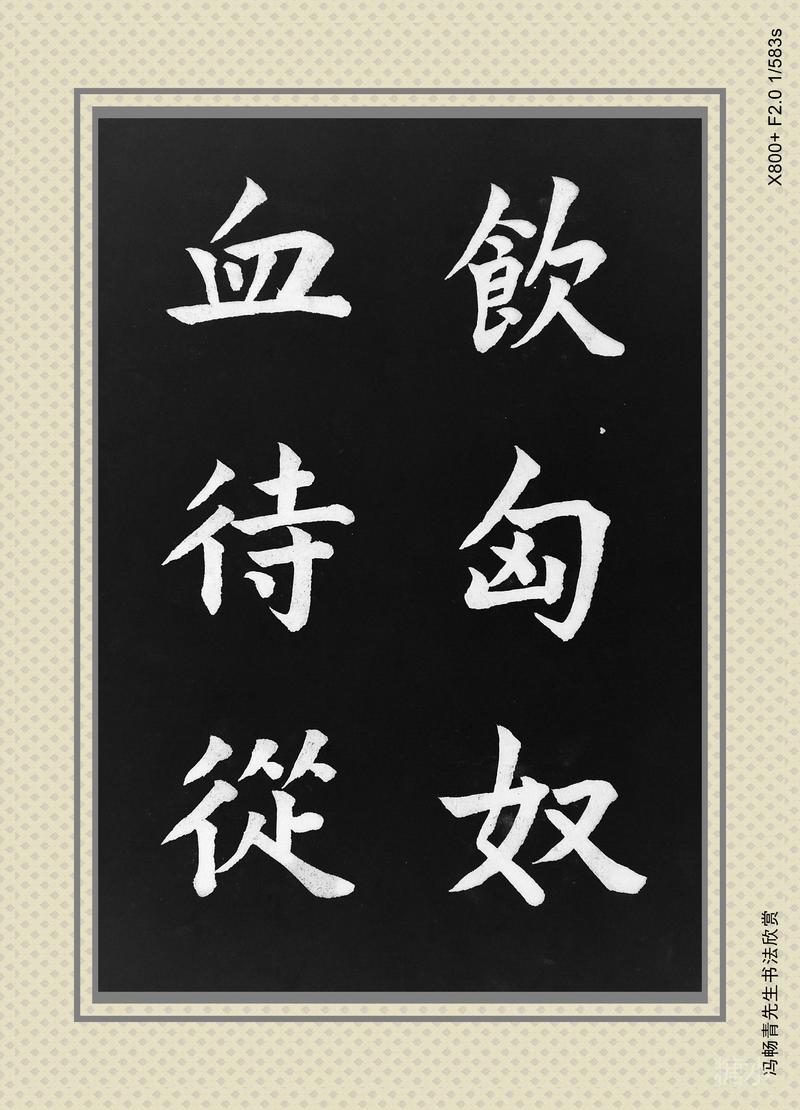 飲匈奴
血待從
X800+ F2.0 1/583s
冯畅青先生书法欣赏